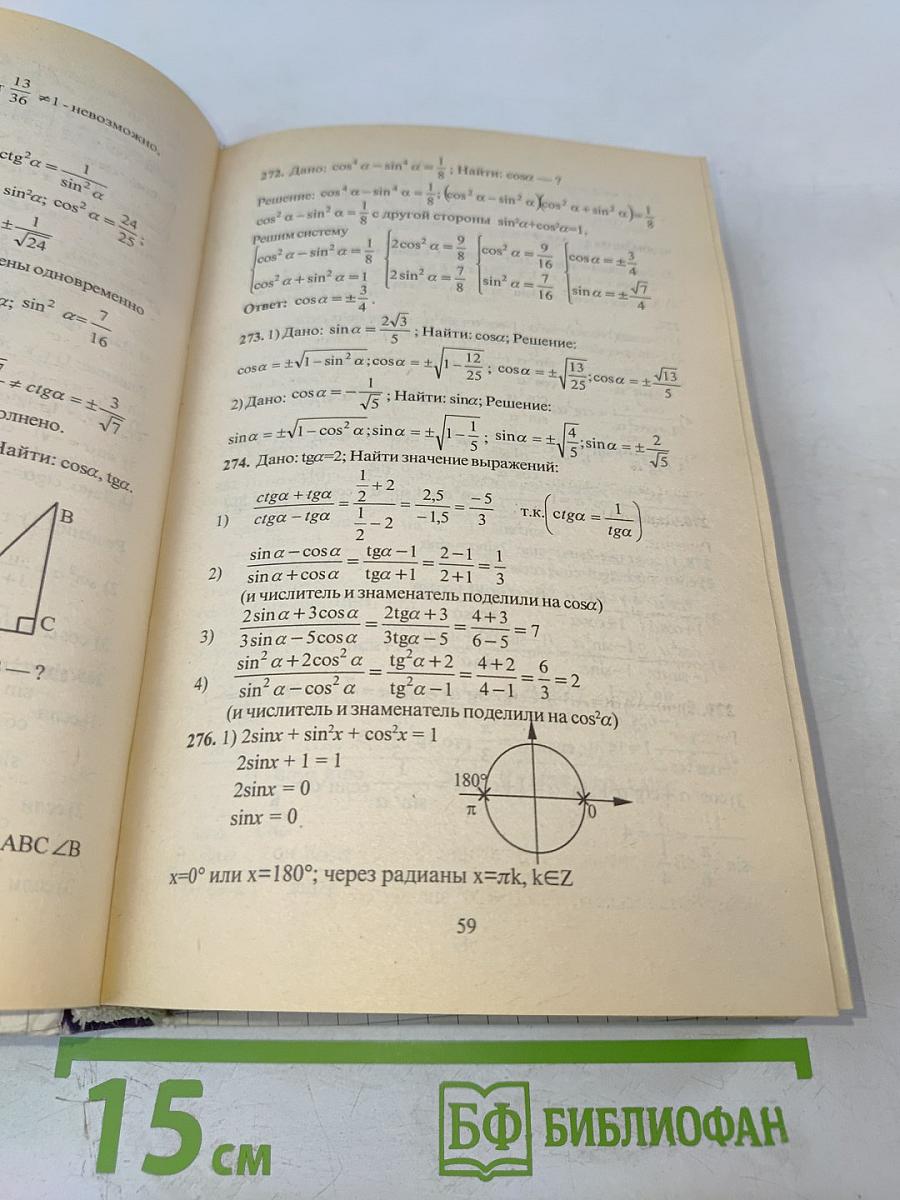 13/36 ≠1 - невозможно.
ctg²α = 1/sin²α
sin²α; cos²α = 24/25;
± 1/√24
ены одновременно
α; sin² α= 7/16
≠ ctgα = ± 3/√7
олнено.
Найти: cosα, tgα.
B
C
— ?
ABC ∠B
272. Дано: cos⁴ α − sin⁴ α = 1/8; Найти: cosα — ?
Решение: cos⁴ α − sin⁴ α = 1/8; (cos² α − sin² α)(cos² α + sin² α)= 1/8
cos² α − sin² α = 1/8 с другой стороны sin²α+cos²α=1,
Решим систему
{cos² α − sin² α = 1/8; cos² α + sin² α = 1 {2cos² α = 9/8; 2sin² α = 7/8 {cos² α = 9/16; sin² α = 7/16 {cosα = ± 3/4; sinα = ± √7/4
Ответ: cosα = ± 3/4 .
273. 1) Дано: sinα = 2√3/5 ; Найти: cosα; Решение:
cosα = ±√(1 − sin² α) ;cosα = ±√(1 − 12/25) ; cosα = ±√(13/25) ;cosα = ± √13/5
2) Дано: cosα = − 1/√5 ; Найти: sinα; Решение:
sinα = ±√(1 − cos² α) ;sinα = ±√(1 − 1/5) ; sinα = ±√(4/5) ;sinα = ± 2/√5
274. Дано: tgα=2; Найти значение выражений:
1) (ctgα + tgα)/(ctgα − tgα) = (1/2 + 2)/(1/2 − 2) = 2,5/−1,5 = −5/3 т.к. (ctgα = 1/tgα)
2) (sinα − cosα)/(sinα + cosα) = (tgα − 1)/(tgα + 1) = (2 − 1)/(2 + 1) = 1/3
(и числитель и знаменатель поделили на cosα)
3) (2sinα + 3cosα)/(3sinα − 5cosα) = (2tgα + 3)/(3tgα − 5) = (4 + 3)/(6 − 5) = 7
4) (sin² α + 2cos² α)/(sin² α − cos² α) = (tg²α + 2)/(tg²α − 1) = (4 + 2)/(4 − 1) = 6/3 = 2
(и числитель и знаменатель поделили на cos²α)
276. 1) 2sinx + sin²x + cos²x = 1
2sinx + 1 = 1
2sinx = 0
sinx = 0
180°
π
0
x=0° или x=180°; через радианы x=πk, k∈Z
59
15 см
БФ БИБЛИОФАН